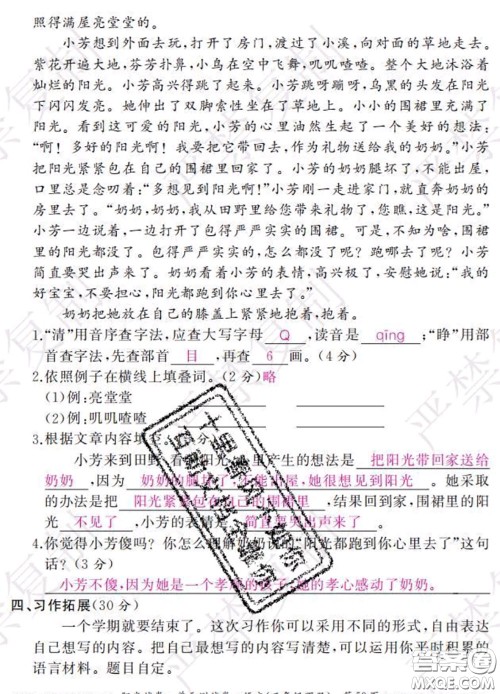 照得满屋亮堂堂的。
小芳想到外面去玩,打开了房门,渡过了小溪,向对面的草地走去。
紫花开遍大地,芬芳扑鼻,小鸟在空中飞舞,叽叽喳喳。整个大地沐浴着
灿烂的阳光。小芳高兴得跳了起来。小芳跳呀蹦呀,乌黑的头发在阳光
下闪闪发亮。她伸出了双脚索性坐在了草地上。小小的围裙里充满了
阳光。看到这可爱的阳光,小芳的心里油然生起了一个美好的想法:
“啊!多好的阳光啊!我要把它带回去,作为礼物送给我的奶奶。”小芳
把阳光紧紧包在自己的围裙里回家了。小芳的奶奶腿坏了,不能出屋,
口里总是念叨着:“多想见到阳光啊!”小芳刚一走进家门,就直奔奶奶的
房里去了。“奶奶,奶奶,我从田野里给您带来礼物了,您瞧,这是阳光。”
小芳一边说着,一边打开了包得严严实实的围裙。可是,不知为啥,围裙
里的阳光都没了。包得严严实实的,怎么都没了呢?跑哪去了呢?小芳
简直要哭出声来了。奶奶看着小芳的表情,高兴极了,安慰她说:“我的
好宝宝,不要担心,阳光都跑到你心里去了。”
奶奶把她放在自己的膝盖上紧紧地抱着,抱着。
1.“清”用音序查字法,应查大写字母 Q ,读音是 qīng ;“睁”用部
首查字法,先查部首 目 ,再查 6 画。(4分)
2.依照例子在横线上填叠词。(2分)略
(1)例:亮堂堂
(2)例:叽叽喳喳
3.根据文章内容填
小芳来到田野,看 产生的想法是 把阳光带回家送给
奶奶 ,因为 ,她很想见到阳光 。她采
取的办法是把 阳光紧紧包在自己的围裙里 ,结果回到家,围裙里的
阳光 不见了 ,小芳的表情是 简直要哭出声来了 。
4.你觉得小芳傻吗?你怎么理解奶奶说的“阳光都跑到你心里去了”这句
话?(3分)
小芳不傻,因为她是一个孝 孩子,她的孝心感动了奶奶。
四、习作拓展(30分)
一个学期就要结束了。这次习作你可以采用不同的形式,自由表达
自己想写的内容。把自己最想写的内容写清楚,可以运用你平时积累的
语言材料。题目自定。